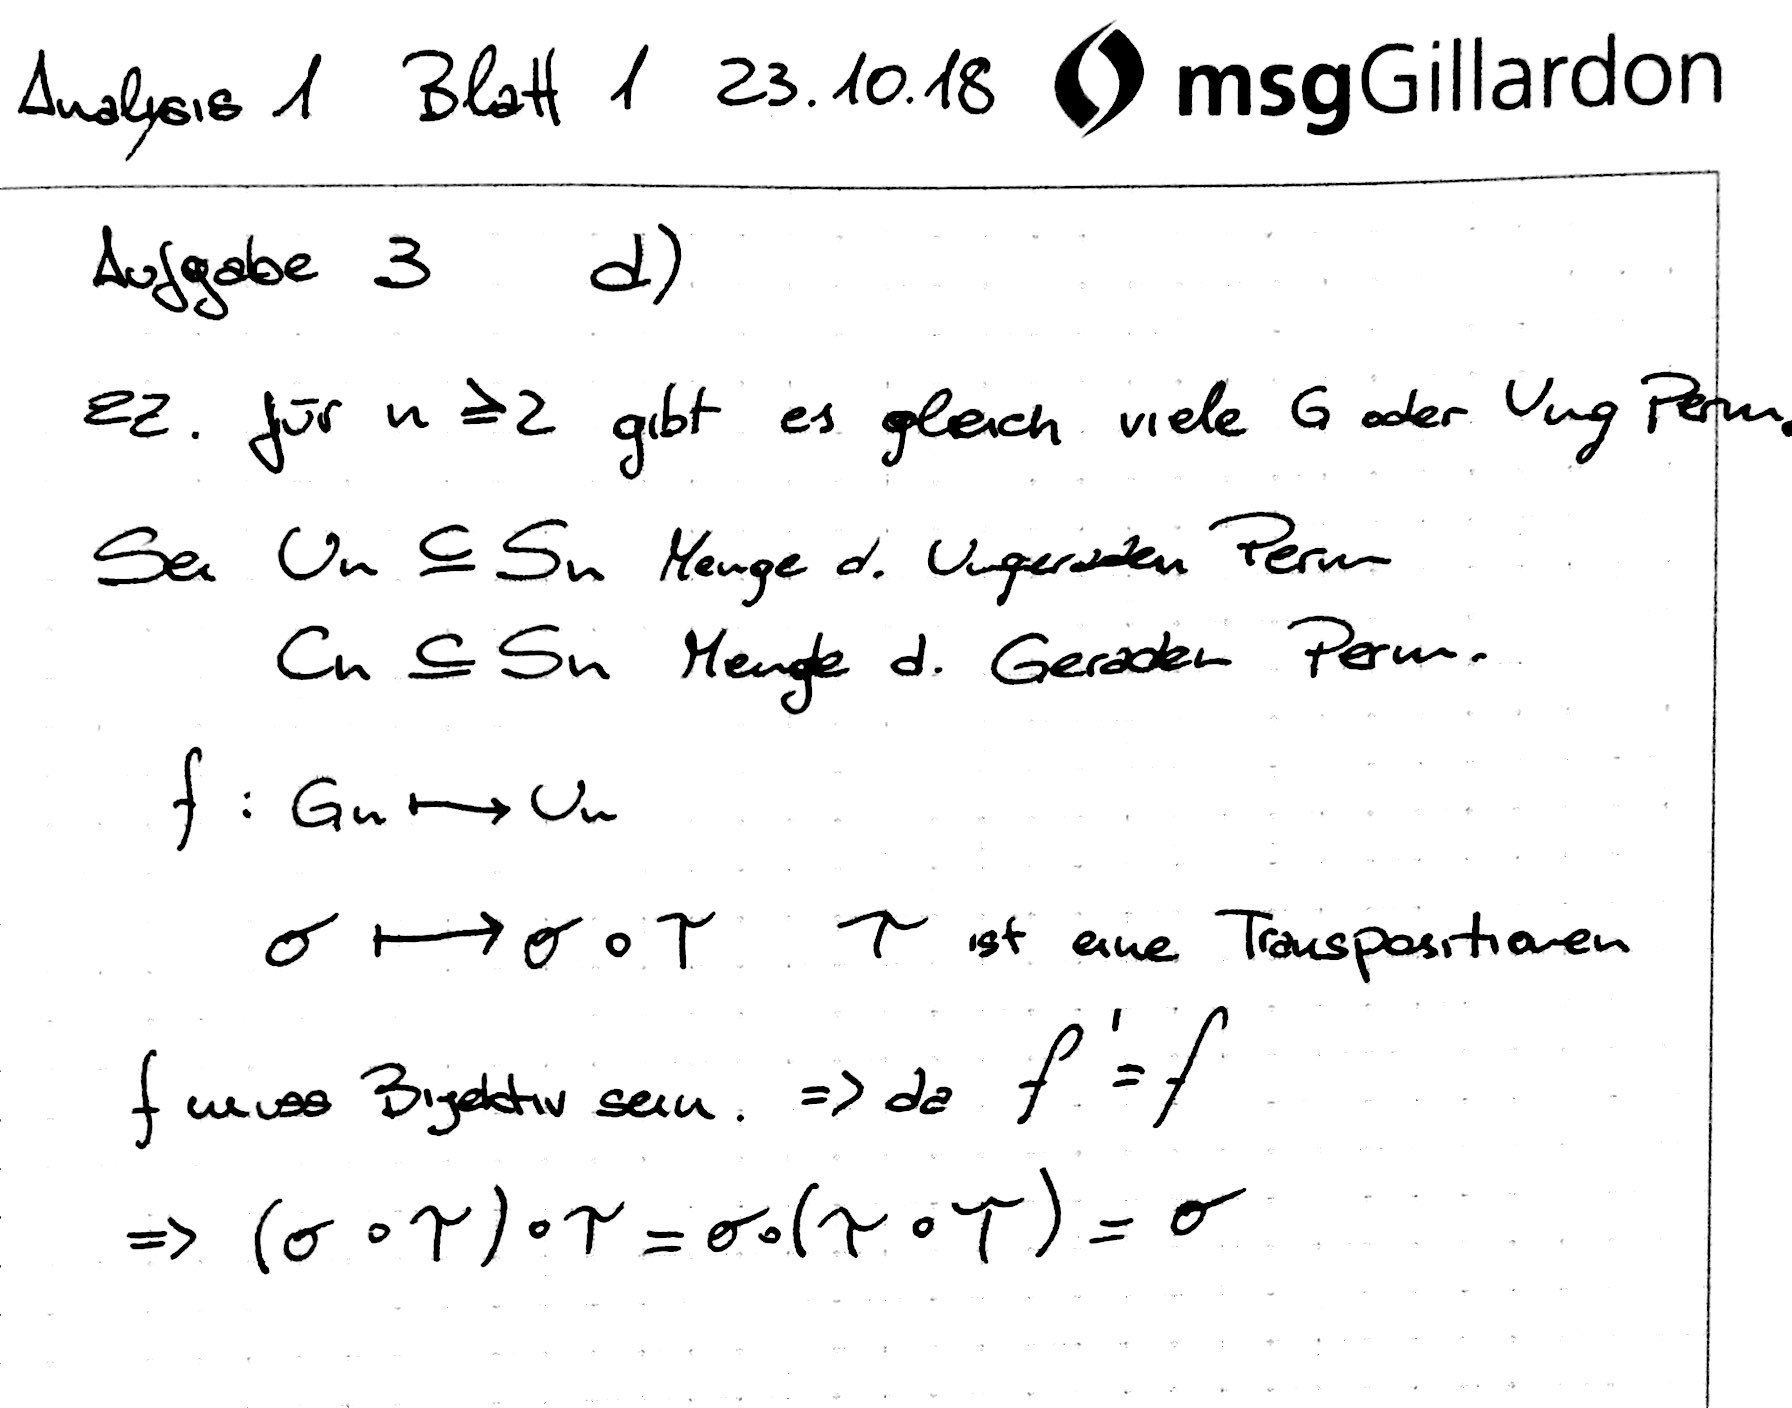 Analysis 1 Blatt 1 23.10.18 msgGillardon
Aufgabe 3 d)
ZZ. für n ≥ 2 gibt es gleich viele G oder Ung Perm.
Sei Un ⊆ Sn Menge d. Ungeraden Perm
Gn ⊆ Sn Menge d. Geraden Perm.
f : Gn ↦ Un
σ ↦ σ ∘ τ τ ist eine Transpositionen
f muss Bijektiv sein. => da f' = f
=> (σ ∘ τ) ∘ τ = σ ∘ (τ ∘ τ) = σ